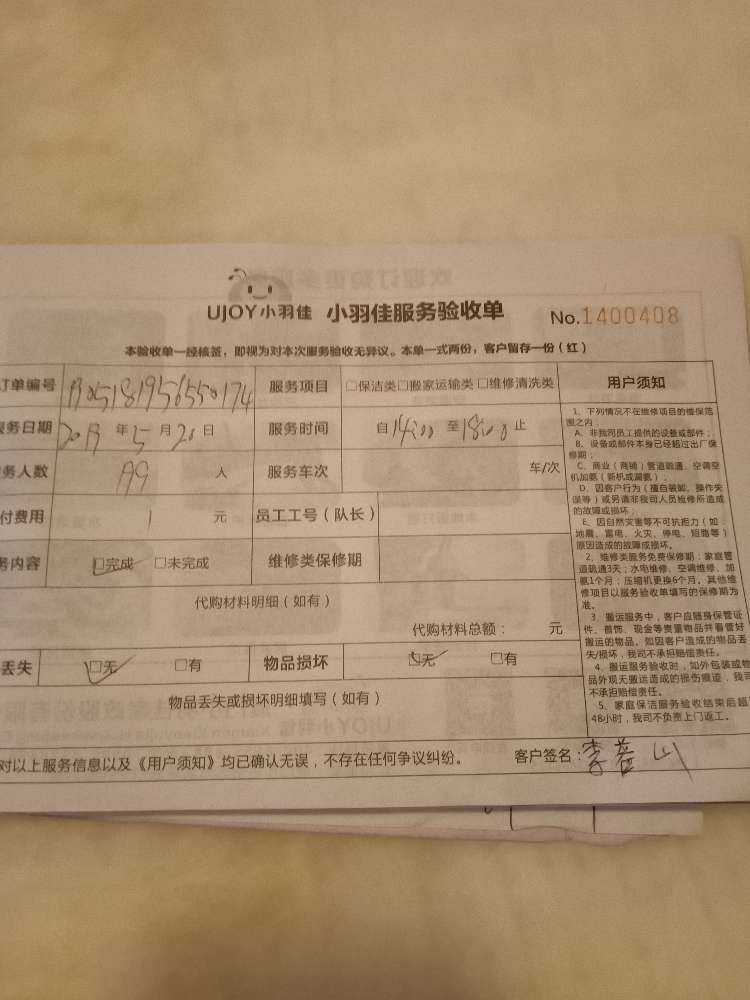 UJOY小羽佳 小羽佳服务验收单 No.1400408
本验收单一经核签，即视为对本次服务验收无异议。本单一式两份，客户留存一份（红）
订单编号 服务项目 □保洁类□搬家运输类□维修清洗类
服务日期 2019 年 5 月 20 日 服务时间 自 14:00 至 18:00 止
务人数 人 服务车次 车/次
付费用 1 元 员工工号（队长）
务内容 □完成 □未完成 维修类保修期
代购材料明细（如有）
代购材料总额： 元
丢失 □无 □有 物品损坏 □无 □有
物品丢失或损坏明细填写（如有）
对以上服务信息以及《用户须知》均已确认无误，不存在任何争议纠纷。 客户签名：李
用户须知
1、下列情况不在维修项目的维保范
围之内：
A、非我司员工提供的设备或部件；
B、设备或部件本身已经超过出厂保
修期；
C、商业（商铺）管道疏通、空调空
机加氨（新机或漏氨）；
D、因客户行为（擅自装卸、操作失
误等）或另请非我司人员维修所造成
的故障或损坏；
E、因自然灾害等不可抗拒力（如：
地震、雷电、火灾、停电、短路等）
原因造成的故障或损坏。
2、维修类服务免费保修期：家庭管
道疏通3天；水电维修、空调维修、加
氨1个月；压缩机更换6个月。其他维
修项目以服务验收单填写的保修期为
准。
3、搬运服务中，客户应随身保管证
件、首饰、现金等贵重物品并看管好
搬运的物品。如因客户造成的物品丢
失/损坏，我司不承担赔偿责任。
4、搬运服务验收时，如外包装或物
品外观无搬运造成的损伤痕迹，我司
不承担赔偿责任。
5、家庭保洁服务验收结束后超
48小时，我司不负责上门返工。